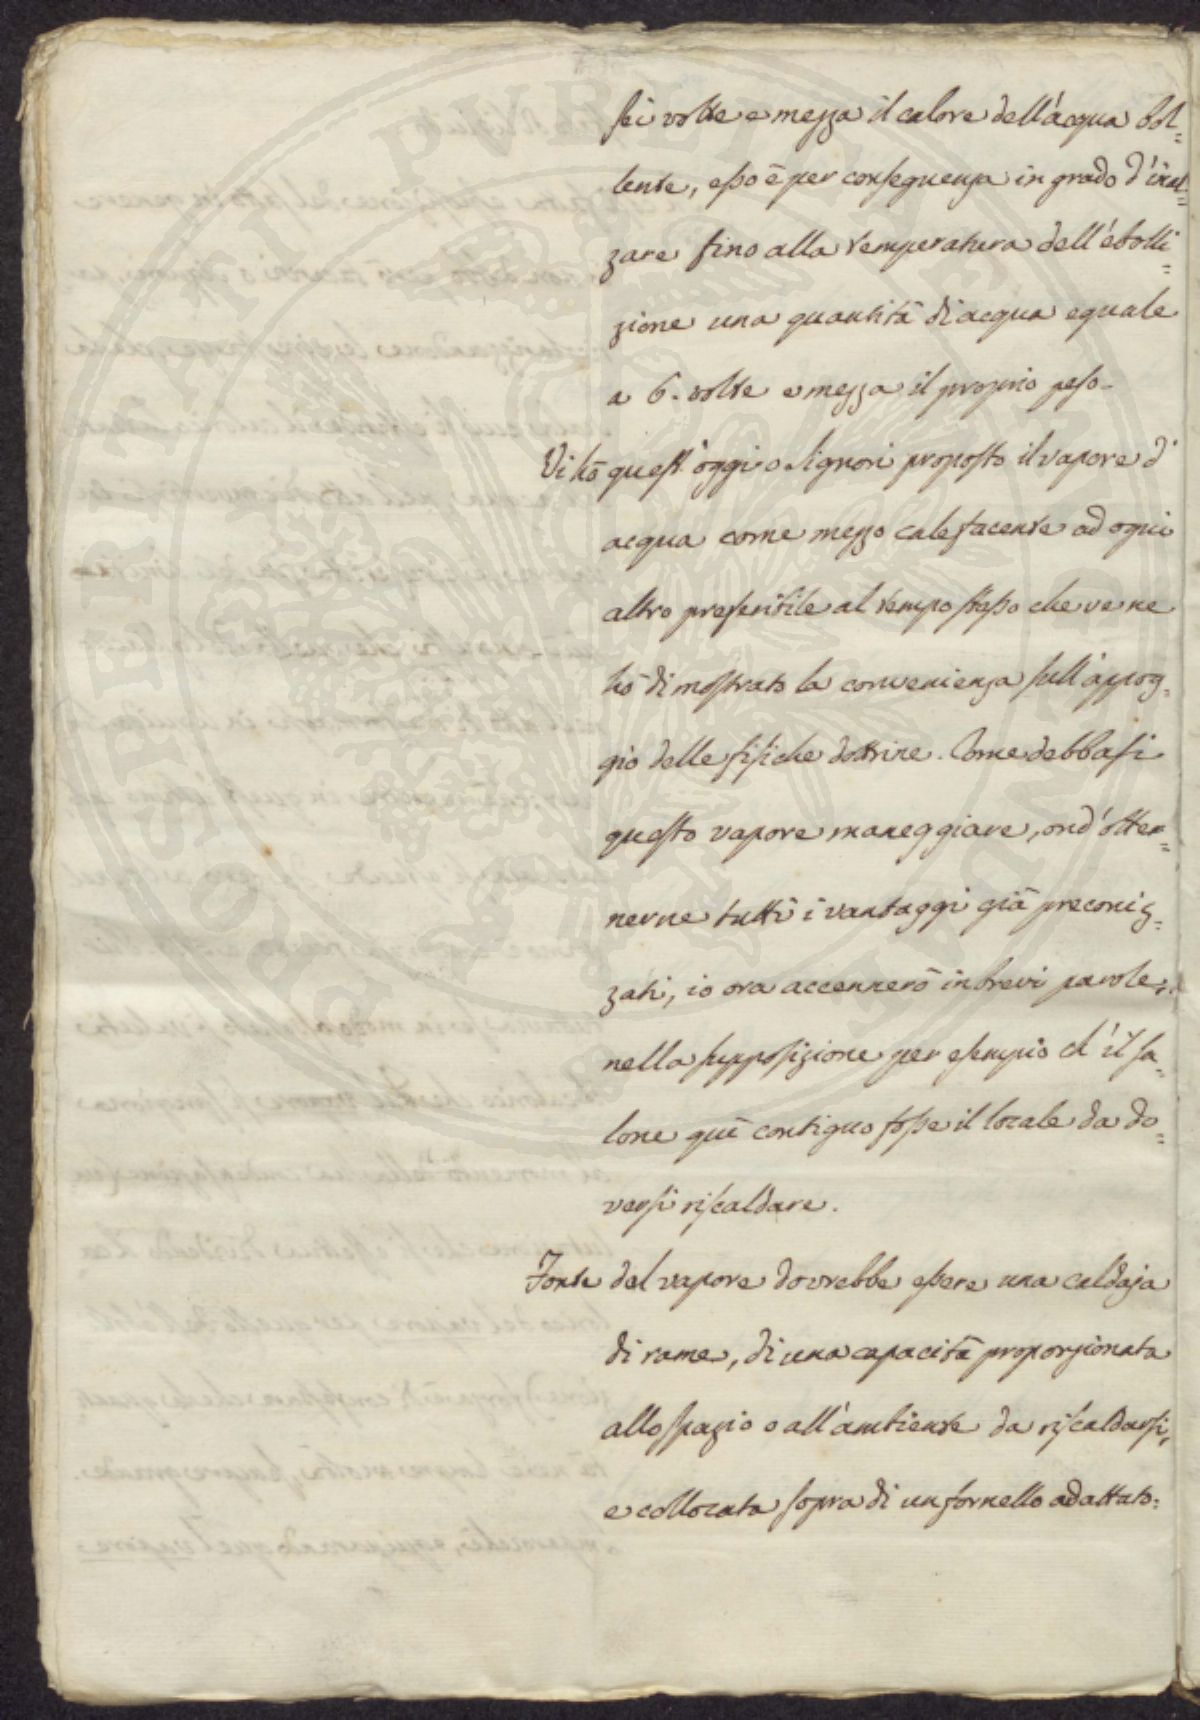 sei volte e mezza il calore dell'acqua bol=
lente, esso è per conseguenza in grado d'inal=
zare fino alla temperatura dell'ebolli=
zione una quantità di acqua eguale
a 6. volte e mezza il proprio peso.
Vi hò quest'oggi o Signori proposto il vapore d'
acqua come mezzo calefacente ad ogni
altro preferibile al tempo stesso che ve ne
hò dimostrato la convenienza sull'appog=
gio delle fisiche dottrine. Come debbasi
questo vapore maneggiare, ond'otte=
nerne tutti i vantaggi già preconiz=
zati, io ora accennerò in brevi parole:
nella supposizione per esempio ch'il sa=
lone quì contiguo fosse il locale da do=
versi riscaldare.
Fonte del vapore dovrebbe essere una caldaja
di rame, di una capacità proporzionata
allo spazio o all'ambiente da riscaldarsi,
e collocata sopra di un fornello adattato:
PROSPERITATI PVBLICAE AVGENDAE